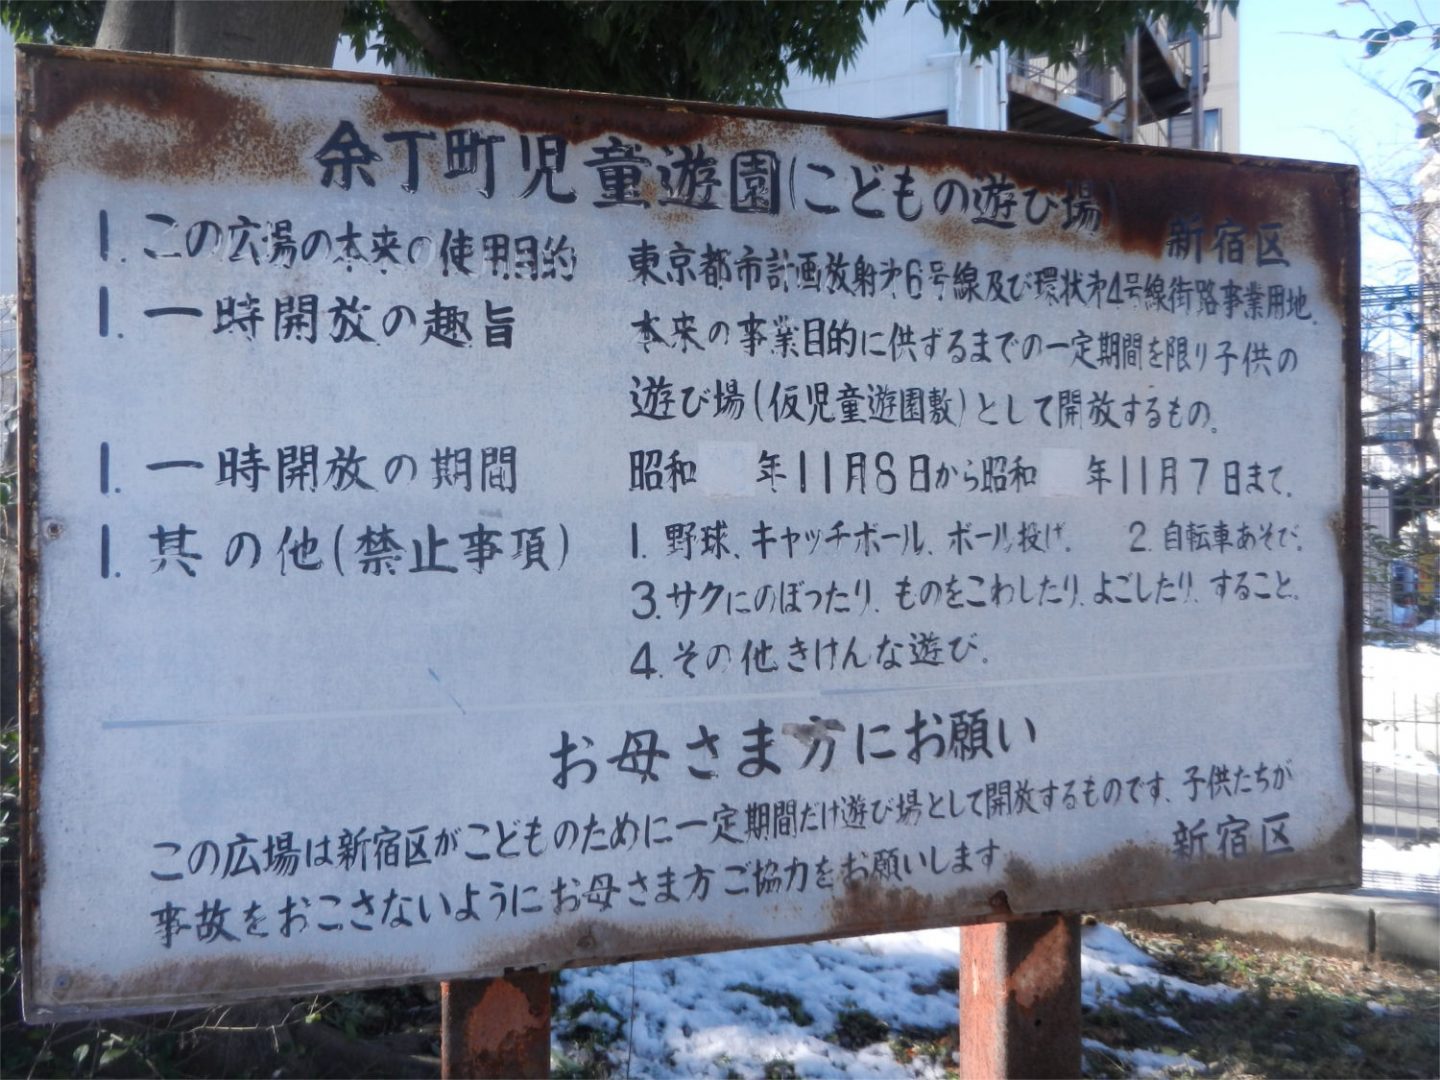 余丁町児童遊園(こどもの遊び場)
新宿区
1. この広場の本来の使用目的 東京都市計画放射第6号線及び環状第4号線街路事業用地.
1. 一時開放の趣旨 本来の事業目的に供ずるまでの一定期間を限り子供の
遊び場(仮児童遊園敷)として開放するもの。
1. 一時開放の期間 昭和 年11月8日から昭和 年11月7日まで.
1. 其の他(禁止事項) 1. 野球、キャッチボール、ボール投げ. 2. 自転車あそび.
3. サクにのぼったり、ものをこわしたり、よごしたり、すること。
4. その他きけんな遊び.
お母さま方にお願い
この広場は新宿区がこどものために一定期間だけ遊び場として開放するものです、子供たちが
事故をおこさないようにお母さま方ご協力をお願いします
新宿区